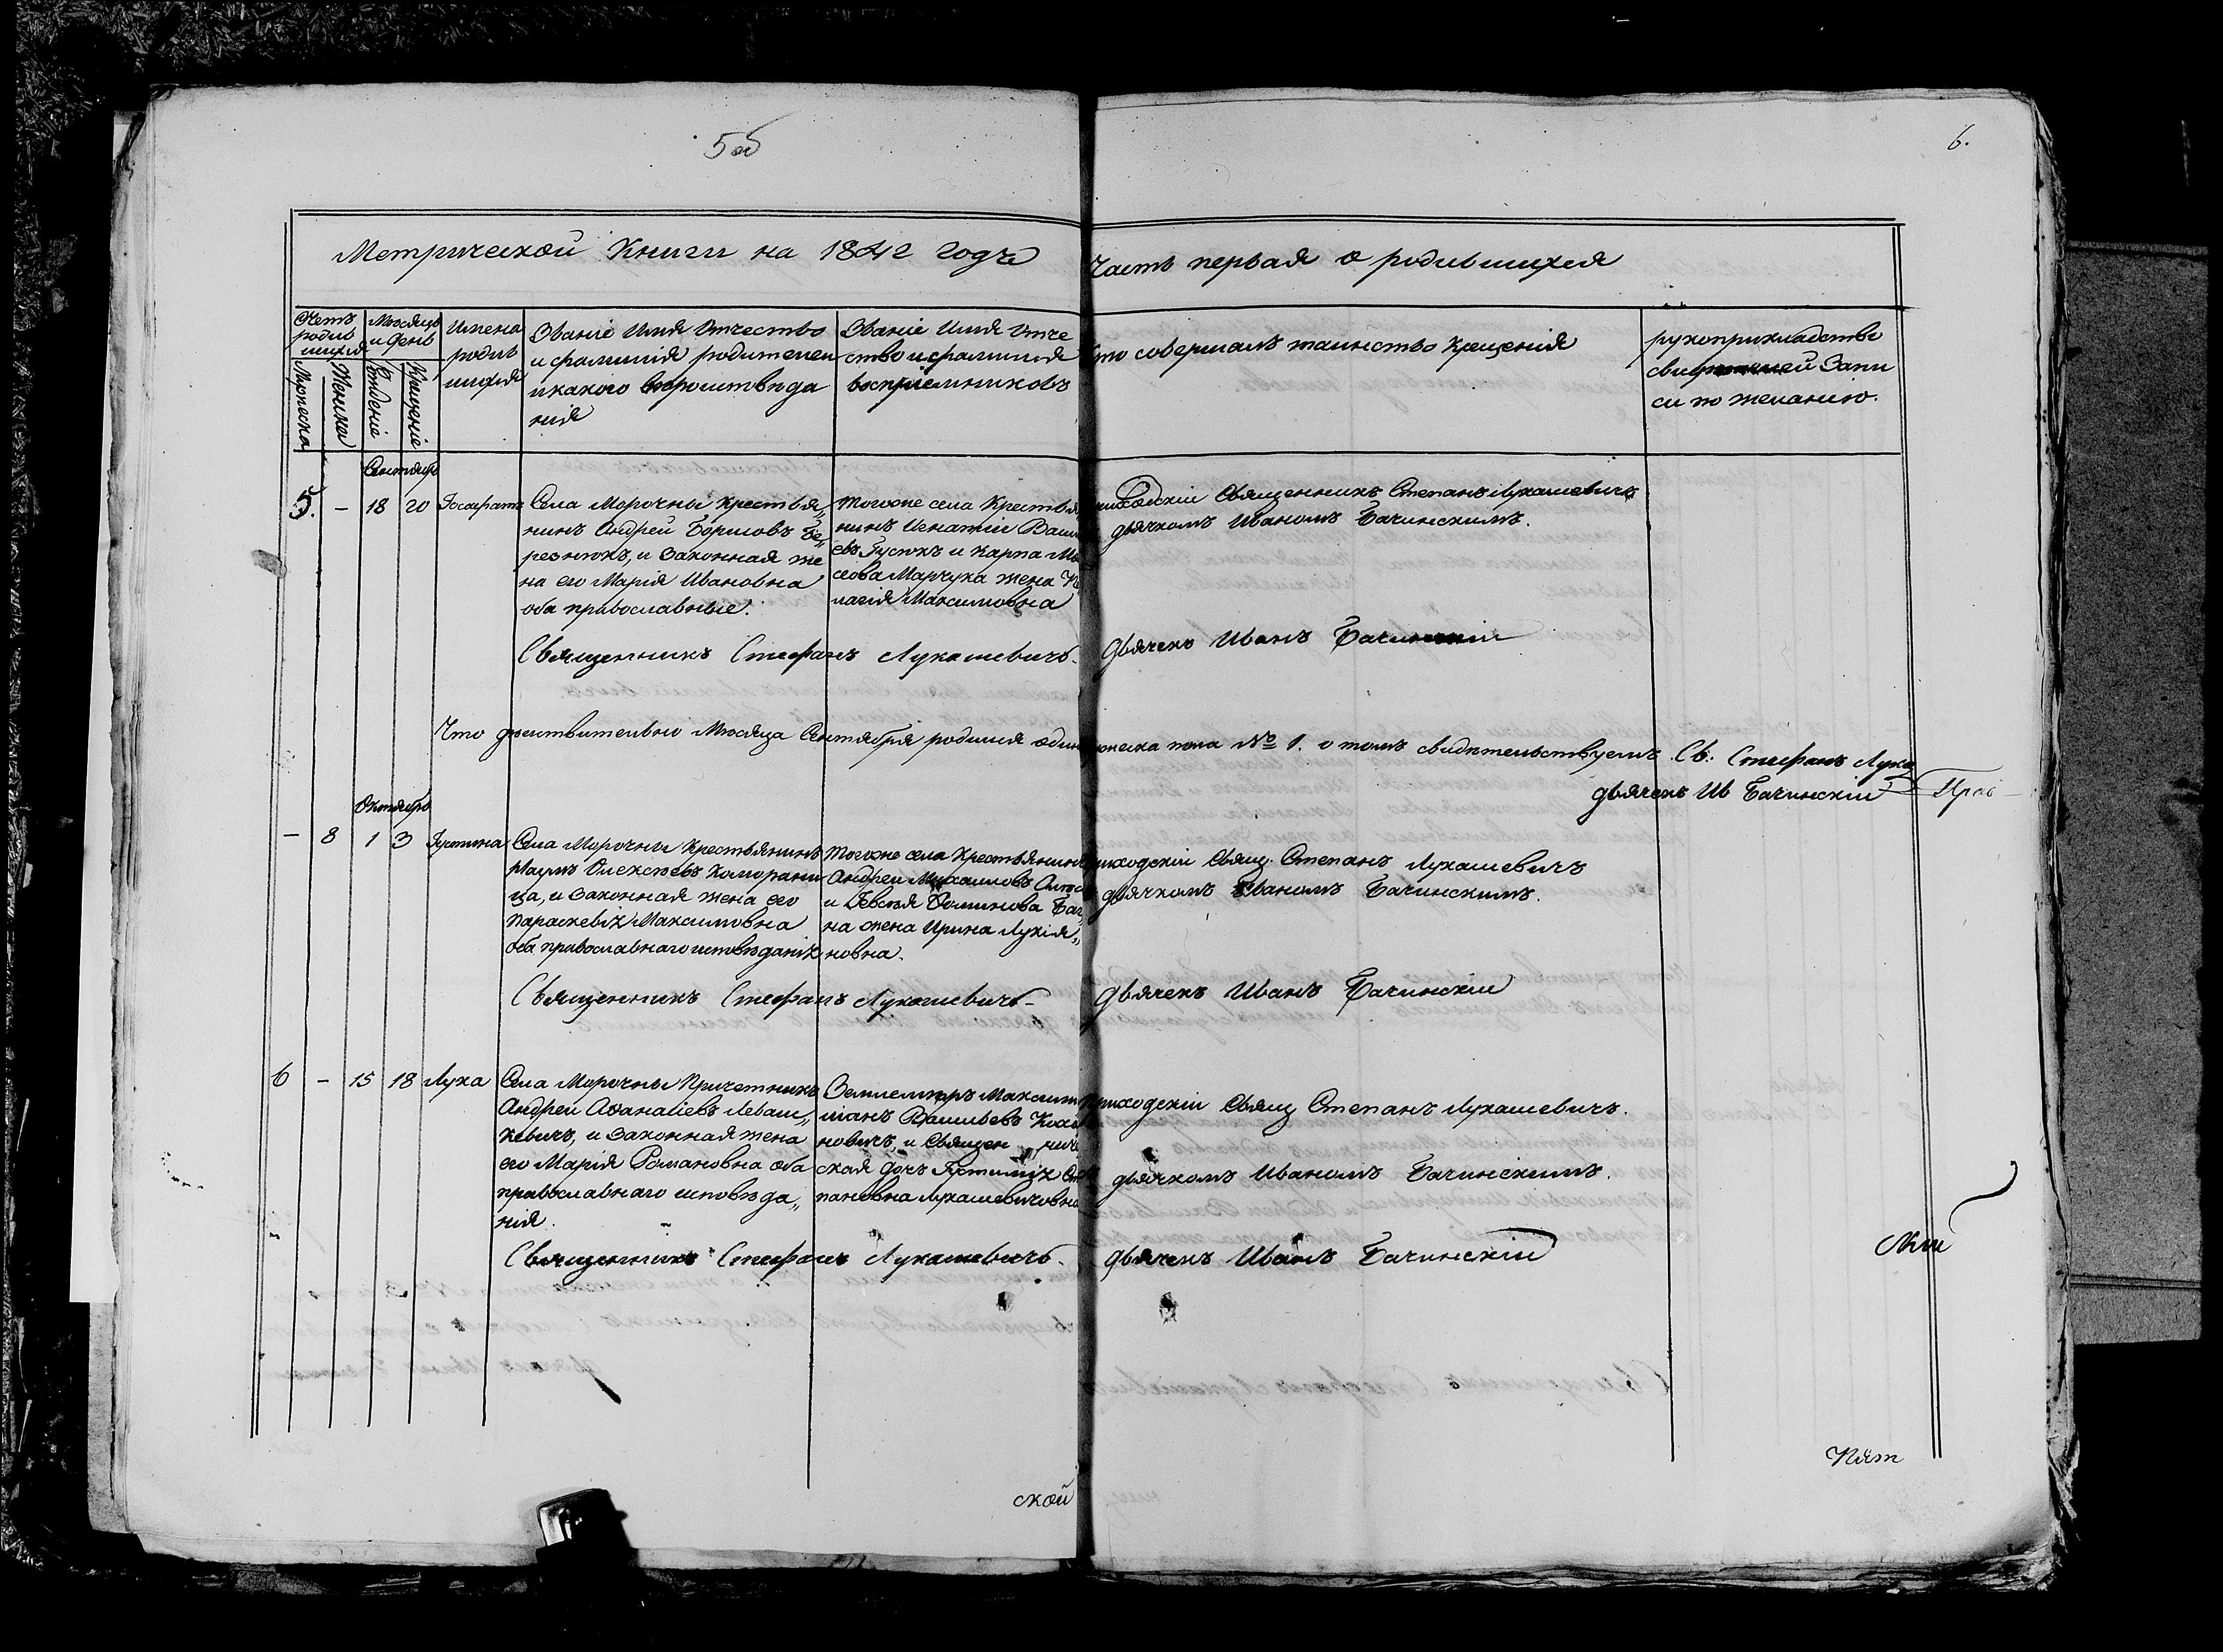 5об
6.
Метрической Книги на 1842 годъ Часть первая о родившихся
Счетъ родив шихся
Мужеска
Женска
Мѣсяцъ и день
Рожденіе
Крещеніе
Имена
родив
шихся
Званіе Имя Отчество
и фамилія родителей
и какого вѣроисповѣда
нія
Званіе Имя Отче
ство и фамилія
воспріемниковъ
Кто совершалъ таинство крещенія
рукоприкладство
свидѣтелей Запи
си по желанію.
Сентябрь
5. - 18 20 Іосафатъ
Села Морочны Крестья„
нинъ Андрей Борисовъ Бе„
резнюкъ, и Законная же
на его Марія Ивановна
оба православные.
Тогоже села Крестья
нинъ Игнатій Васи
евъ Гусюкъ и Карпа Мо
сеова Марчука жена Пе
лагія Максимовна
Приходскій Священникъ Степанъ Лукашевичъ
дьячкомъ Иваномъ Бачинскимъ.
Священникъ Стефанъ Лукашевичъ. Дьячекъ Иванъ Бачинскій
Что дѣйствительно Мѣсяца Сентября родился одинъ мужеска пола № 1. о томъ свидѣтельствуемъ. Св: Стефанъ Лука
дьячекъ Ив Бачинскій
Октябрь
- 8 1 3 Іустина
Села Морочны Крестьянинъ
Наумъ Олексѣевъ Коморани
ца, и Законная жена его
Параскевія Максимовна
оба православнаго исповѣданія
Тогоже села Крестьянинъ
Андрей Михаиловъ
и Евсѣя Бач„
на жена Ирина Лукія„
новна.
Приходскій Свящ: Степанъ Лукашевичъ
дьячкомъ Иваномъ Бачинскимъ.
Священникъ Стефанъ Лукашевичъ- Дьячекъ Иванъ Бачинскій
6 - 15 18 Лука
Села Морочны Причетникъ
Андрей Аѳанасіевъ Леваш„
кевичъ, и Законная жена
его Марія Романовна оба
православнаго исповѣда„
нія.
Землемѣръ Максими
ліанъ Васильевъ
новичъ, и Священ ниче
ская дочъ Іустинія Сте
пановна Лукашевичовна
Приходскій Свящ Степанъ Лукашевичъ.
дьячкомъ Иваномъ Бачинскимъ.
Священникъ Стефанъ Лукашевичъ. Дьячекъ Иванъ Бачинскій
ской